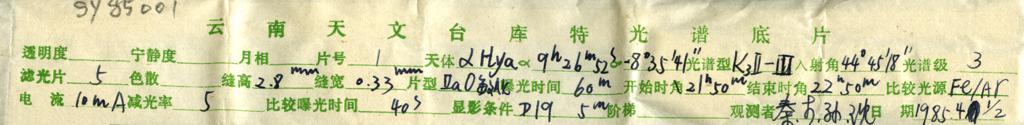 SY85001
云南天文台库特光谱底片
透明度 宁静度 月相 片号 1 天体 α Hya α 9h 26m 52s δ -8°35′41″ 光谱型 K3II-III 入射角 44°45′18″ 光谱级 3
滤光片 5 色散 缝高 2.8mm 缝宽 0.33mm 片型 IIaO 曝光时间 60m 开始时角 21h50m 结束时角 22h50m 比较光源 Fe/Ar
电流 10mA 减光率 5 比较曝光时间 40s 显影条件 D19 5m 阶梯 观测者 秦 孙 沈 日期 1985 4 1/2